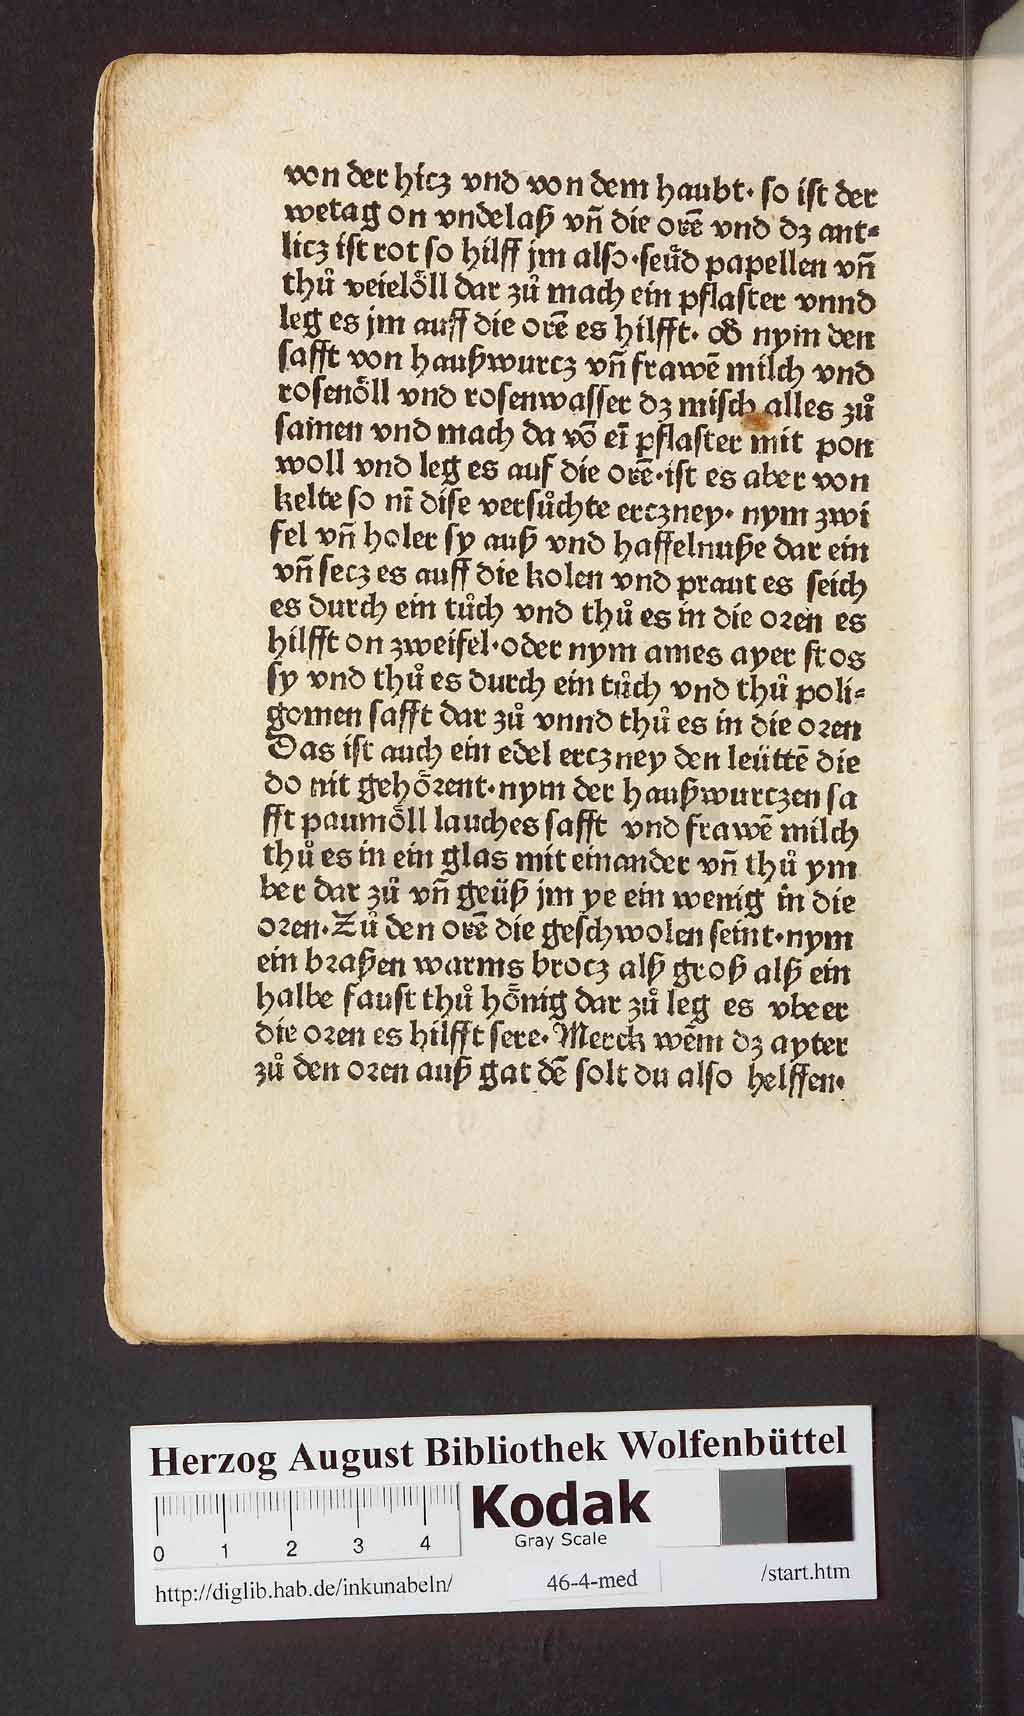 von der hicz vnd von dem haubt· so ist der
wetag on vndelaß vñ die orē vnd dz ant⸗
licz ist rot so hilff jm also·seu̇d papellen vñ
thů veieloͤll dar zů mach ein pflaster vnnd
leg es jm auff die orē es hilfft· oð nym den
safft von haußwurcz vñ frawē milch vnd
rosenoͤll vnd rosenwasser dz misch alles zů
samen vnd mach da vō eī pflaster mit pon
woll vnd leg es auf die orē·ist es aber von
kelte so nī dise versůchte erczney· nym zwi
fel vñ holer sy auß vnd hasselnuße dar ein
vñ secz es auff die kolen vnd praut es seich
es durch ein tůch vnd thů es in die oren es
hilfft on zweifel·oder nym ames ayer stos
sy vnd thů es durch ein tůch vnd thů poli⸗
gomen safft dar zů vnnd thů es in die oren
Das ist auch ein edel erczney den leüttē die
do nit gehoͤrent·nym der haußwurczen sa
fft paumoͤll lauches safft vnd frawē milch
thů es in ein glas mit einander vñ thů ym
ber dar zů vñ geüß jm ye ein wenig in die
oren·Zů den orē die geschwolen seint·nym
ein braßen warms brocz alß groß alß ein
halbe faust thů hoͤnig dar zů leg es vbeer
die oren es hilfft sere· Merck wēm dz ayter
zů den oren auß gat dē solt du also helffen·
Herzog August Bibliothek Wolfenbüttel
Kodak
Gray Scale
0 1 2 3 4
http://diglib.hab.de/inkunabeln/ 46-4-med /start.htm